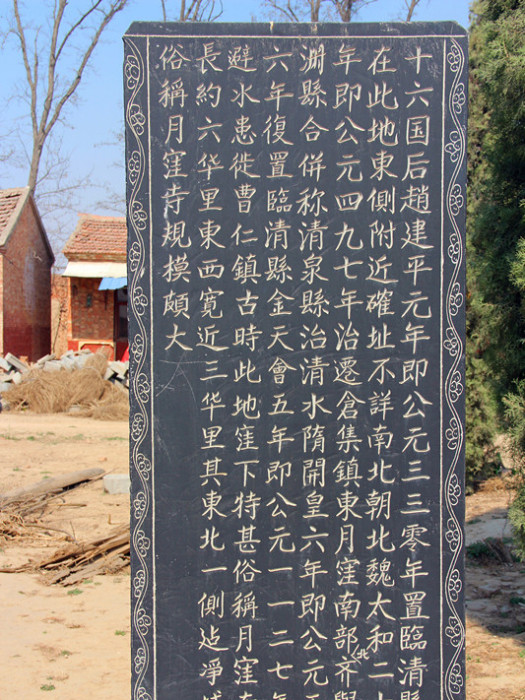 十六国后趙建平元年即公元三三零年置臨清縣
在此地東側附近確址不詳南北朝北魏太和二十
年即公元四九七年治遷倉集鎮東月窪南部北齊與
淵縣合併称清泉縣治清水隋開皇六年即公元
六年復置臨清縣金天會五年即公元一一二七年
避水患徙曹仁鎮古時此地窪下特甚俗稱月窪
長約六华里東西寛近三华里其東北一側
俗稱月窪寺規模頗大